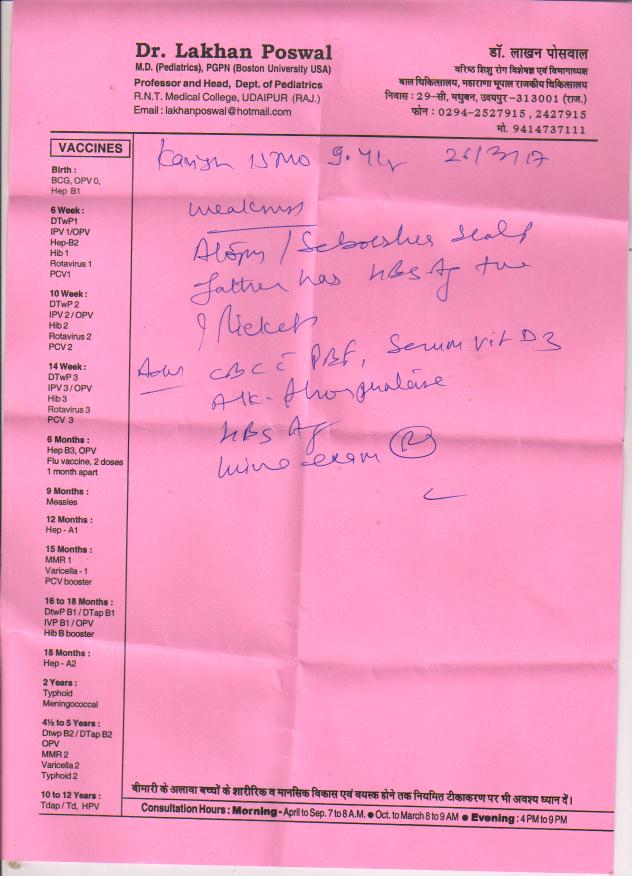 Dr. Lakhan Poswal
M.D. (Pediatrics), PGPN (Boston University USA)
Professor and Head, Dept. of Pediatrics
R.N.T. Medical College, UDAIPUR (RAJ.)
Email : lakhanposwal@hotmail.com
डॉ. लाखन पोसवाल
वरिष्ठ शिशु रोग विशेषज्ञ एवं विभागाध्यक्ष
बाल चिकित्सालय, महाराणा भूपाल राजकीय चिकित्सालय
निवास : 29-सी, मधुबन, उदयपुर-313001 (राज.)
फोन : 0294-2527915, 2427915
मो. 9414737111
VACCINES
Birth :
BCG, OPV 0,
Hep B1
6 Week :
DTwP1
IPV 1/OPV
Hep-B2
Hib 1
Rotavirus 1
PCV1
10 Week :
DTwP 2
IPV 2 / OPV
Hib 2
Rotavirus 2
PCV 2
14 Week :
DTwP 3
IPV 3 / OPV
Hib 3
Rotavirus 3
PCV 3
6 Months :
Hep B3, OPV
Flu vaccine, 2 doses
1 month apart
9 Months :
Measles
12 Months :
Hep - A1
15 Months :
MMR 1
Varicella - 1
PCV booster
16 to 18 Months :
DtwP B1 / DTap B1
IVP B1 / OPV
Hib B booster
18 Months :
Hep - A2
2 Years :
Typhoid
Meningococcal
4½ to 5 Years :
Dtwp B2 / DTap B2
OPV
MMR 2
Varicella 2
Typhoid 2
10 to 12 Years :
Tdap / Td, HPV
15 mo
weakness
Atopy / Seborrhea Scalp
father has HBsAg +ve
? Rickets
Adv CBC c̄ PBF, Serum Vit D3
Alk. Phosphatase
HBsAg
Urine exam (R)
बीमारी के अलावा बच्चों के शारीरिक व मानसिक विकास एवं वयस्क होने तक नियमित टीकाकरण पर भी अवश्य ध्यान दें।
Consultation Hours : Morning - April to Sep. 7 to 8 A.M. ● Oct. to March 8 to 9 AM ● Evening : 4 PM to 9 PM